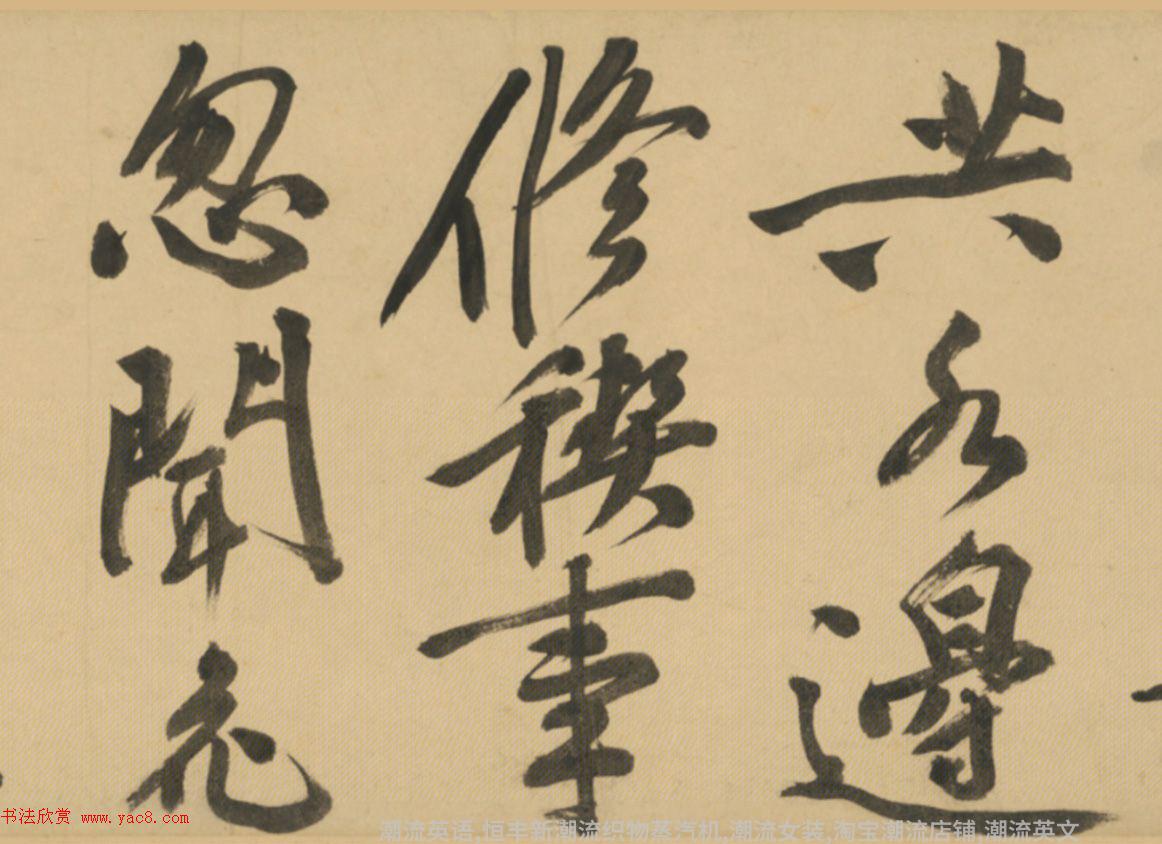 共水邊
修禊事
忽聞花
书法欣赏 www.yac8.com
潮流英语.恒丰新潮流织物蒸汽机,潮流女装,淘宝潮流店铺,潮流英文